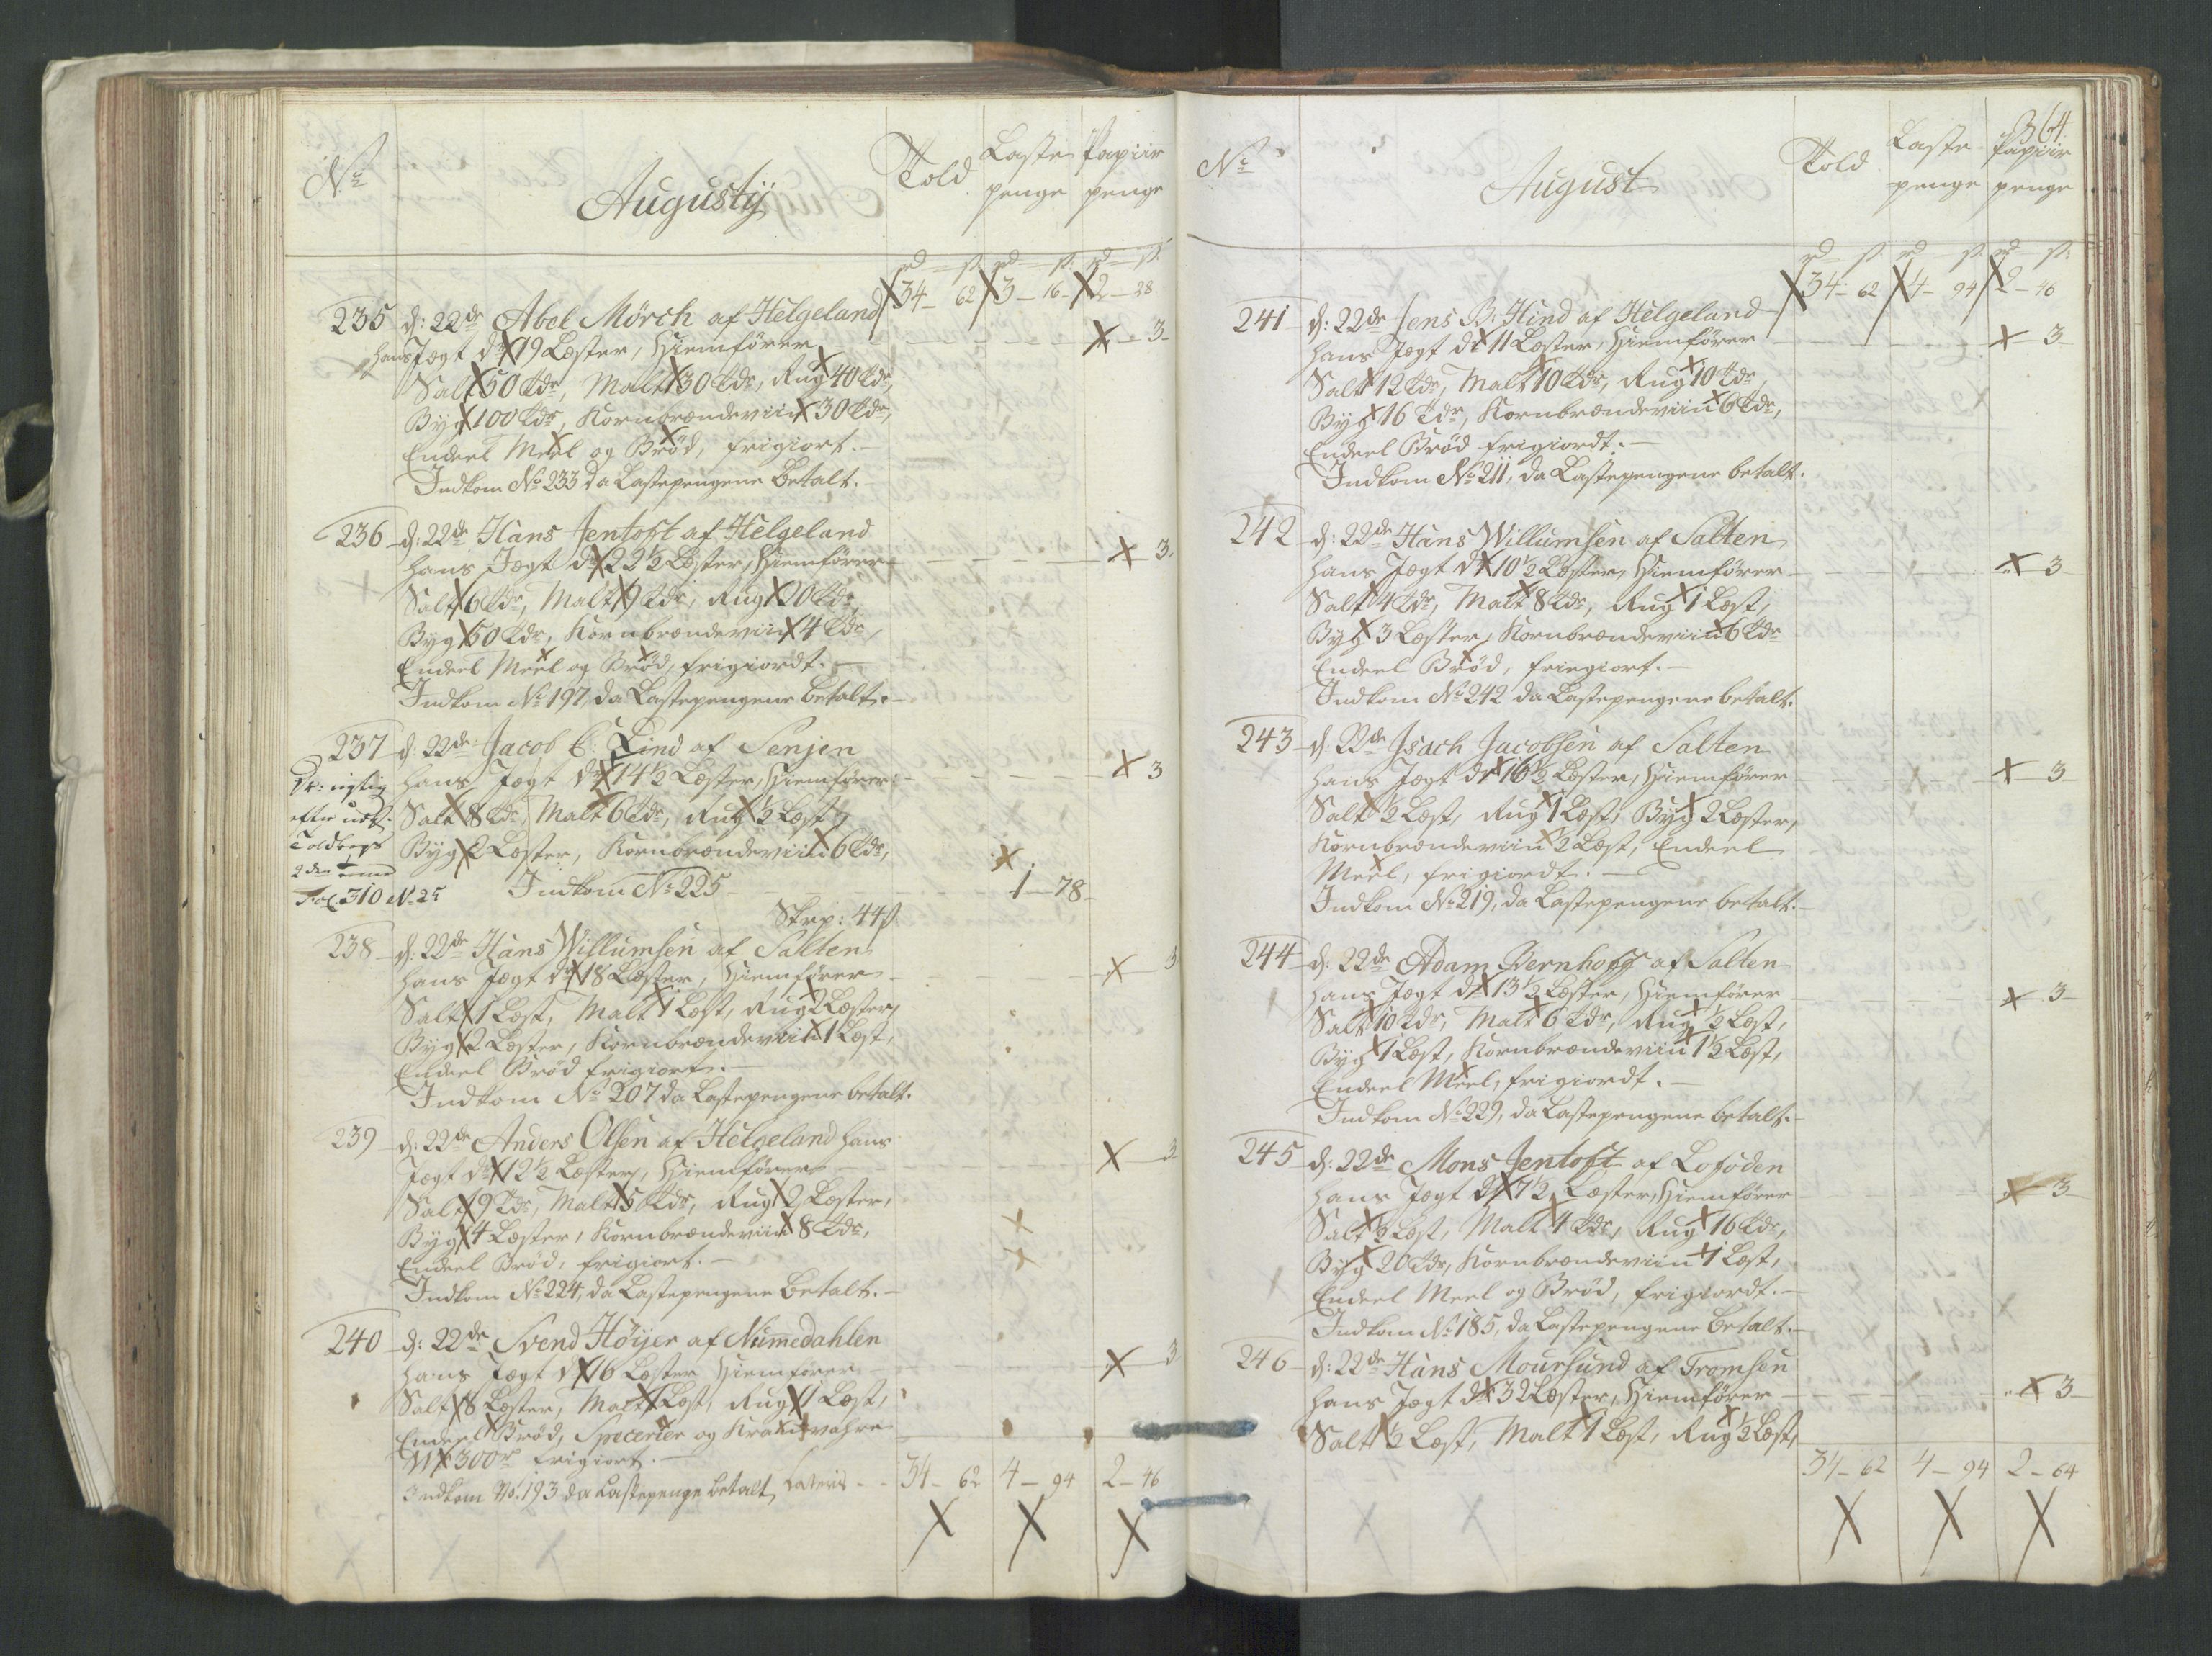 No
Augustij
Told
Laste
penge
Papiir
penge
rd ß rd ß rd ß
34 - 62 3 - 16 - 2 - 28
235 d: 22de Abel Mörch af Helgeland
hans Jægt dr 19 Læster, Hiemfører - 3 -
Salt 50 tdr, Malt 30 tdr, Rug 40 tdr,
Byg 100 tdr, Kornbrændeviin 30 tdr,
Endeel Meel og Brød, frigiort. -
Indkom No 233 da Lastepengene betalt.
236 d: 22de Hans Jentoft af Helgeland
hans Jægt dr 22 1/2 Læster, Hiemfører - 3.
Salt 6 tdr, Malt 9 tdr, Rug 20 tdr,
Byg 50 tdr, Kornbrændeviin 4 tdr,
Endeel Meel og Brød, frigiordt. -
Indkom No 197 da Lastepengene betalt. -
237 d: 22de Jacob E: Lind af Senjen
hans Jægt dr 14 1/2 Læster, Hiemfører - 3
Salt 8 tdr, Malt 6 tdr, Rug 1/2 Læst,
Byg 2 Læster, Kornbrændeviin 6 tdr,
Indkom No 225 - 1 - 78 -
efter
Toldbogs
Fol. 310 No 25
Skrp: 44 ß.
238 d: 22de Hans Willumsen af Salten
hans Jægt dr 18 Læster, Hiemfører - 3
Salt 1 Læst, Malt 1 Læst, Rug 2 Læster,
Byg 2 Læster, Kornbrændeviin 1 Læst,
Endeel Brød frigiort. -
Indkom No 207 da Lastepengene betalt.
239 d: 22de Anders Olsen af Helgeland hans
Jægt dr 12 1/2 Læster, Hiemfører - 3
Salt 9 tdr, Malt 5 tdr, Rug 2 Læster,
Byg 4 Læster, Kornbrændeviin 8 tdr,
Endeel Brød, frigiort. -
Indkom No 224, da Lastepengene betalt. -
240 d: 22de Svend Höyer af Numedahlen
hans Jægt dr 16 Læster Hiemfører - 3
Salt 8 Læster, Malt 1 Læst, Rug 1 Læst,
Endeel Brød, Specerier og Kramvahre
300 rd frigiort. -
Indkom No. 193 da Lastepenge betalt Lateris - - 34 - 62 4 - 94 2 - 46
364.
No
August
Told
Laste
penge
Papiir
penge
rd ß rd ß rd ß
34 - 62 4 - 94 2 - 46
241 d: 22de Jens B: Hind af Helgeland
hans Jægt dr 11 Læster, Hiemfører - 3
Salt 12 tdr, Malt 10 tdr, Rug 10 tdr,
Byg 16 tdr, Kornbrændeviin 6 tdr,
Endeel Brød frigiordt. -
Indkom No 211, da Lastepengene betalt.
242 d: 22de Hans Willumsen af Salten
hans Jægt dr 10 1/2 Læster, Hiemfører - 3
Salt 4 tdr, Malt 8 tdr, Rug 1 Læst,
Byg 3 Læster, Kornbrændeviin 6 tdr
Endeel Brød, friegiort. -
Indkom No 242 da Lastepengene betalt.
243 d: 22de Isach Jacobsen af Salten
hans Jægt dr 16 1/2 Læster, Hiemfører - 3
Salt 1/2 Læst, Rug 1 Læst, Byg 2 Læster,
Kornbrændeviin 1/2 Læst, Endeel
Meel, frigiordt. -
Indkom No 219, da Lastepengene betalt. -
244 d: 22de Adam Bernhoff af Salten
hans Jægt dr 13 1/2 Læster, Hiemfører - 3 -
Salt 10 tdr, Malt 6 tdr, Rug 1/2 Læst,
Byg 1 Læst, Kornbrændeviin 1 1/2 Læst,
Endeel Meel, frigiordt. -
Indkom No 229, da Lastepengene betalt. -
245 d: 22de Mons Jentoft af Lofoden
hans Jægt dr 7 1/2 Læster, Hiemfører - 3 -
Salt 1/2 Læst, Malt 4 tdr, Rug 16 tdr,
Byg 20 tdr, Kornbrændeviin 1 Læst,
Endeel Meel og Brød, frigiordt. -
Indkom No 185, da Lastepengene betalt. -
246 d: 22de Hans Moursund af Tromsen
hans Jægt dr 32 Læster, Hiemfører - 3 -
Salt 1/2 Læst, Malt 1 Læst, Rug 1/2 Læst,
34 - 62 4 - 94 2 - 64